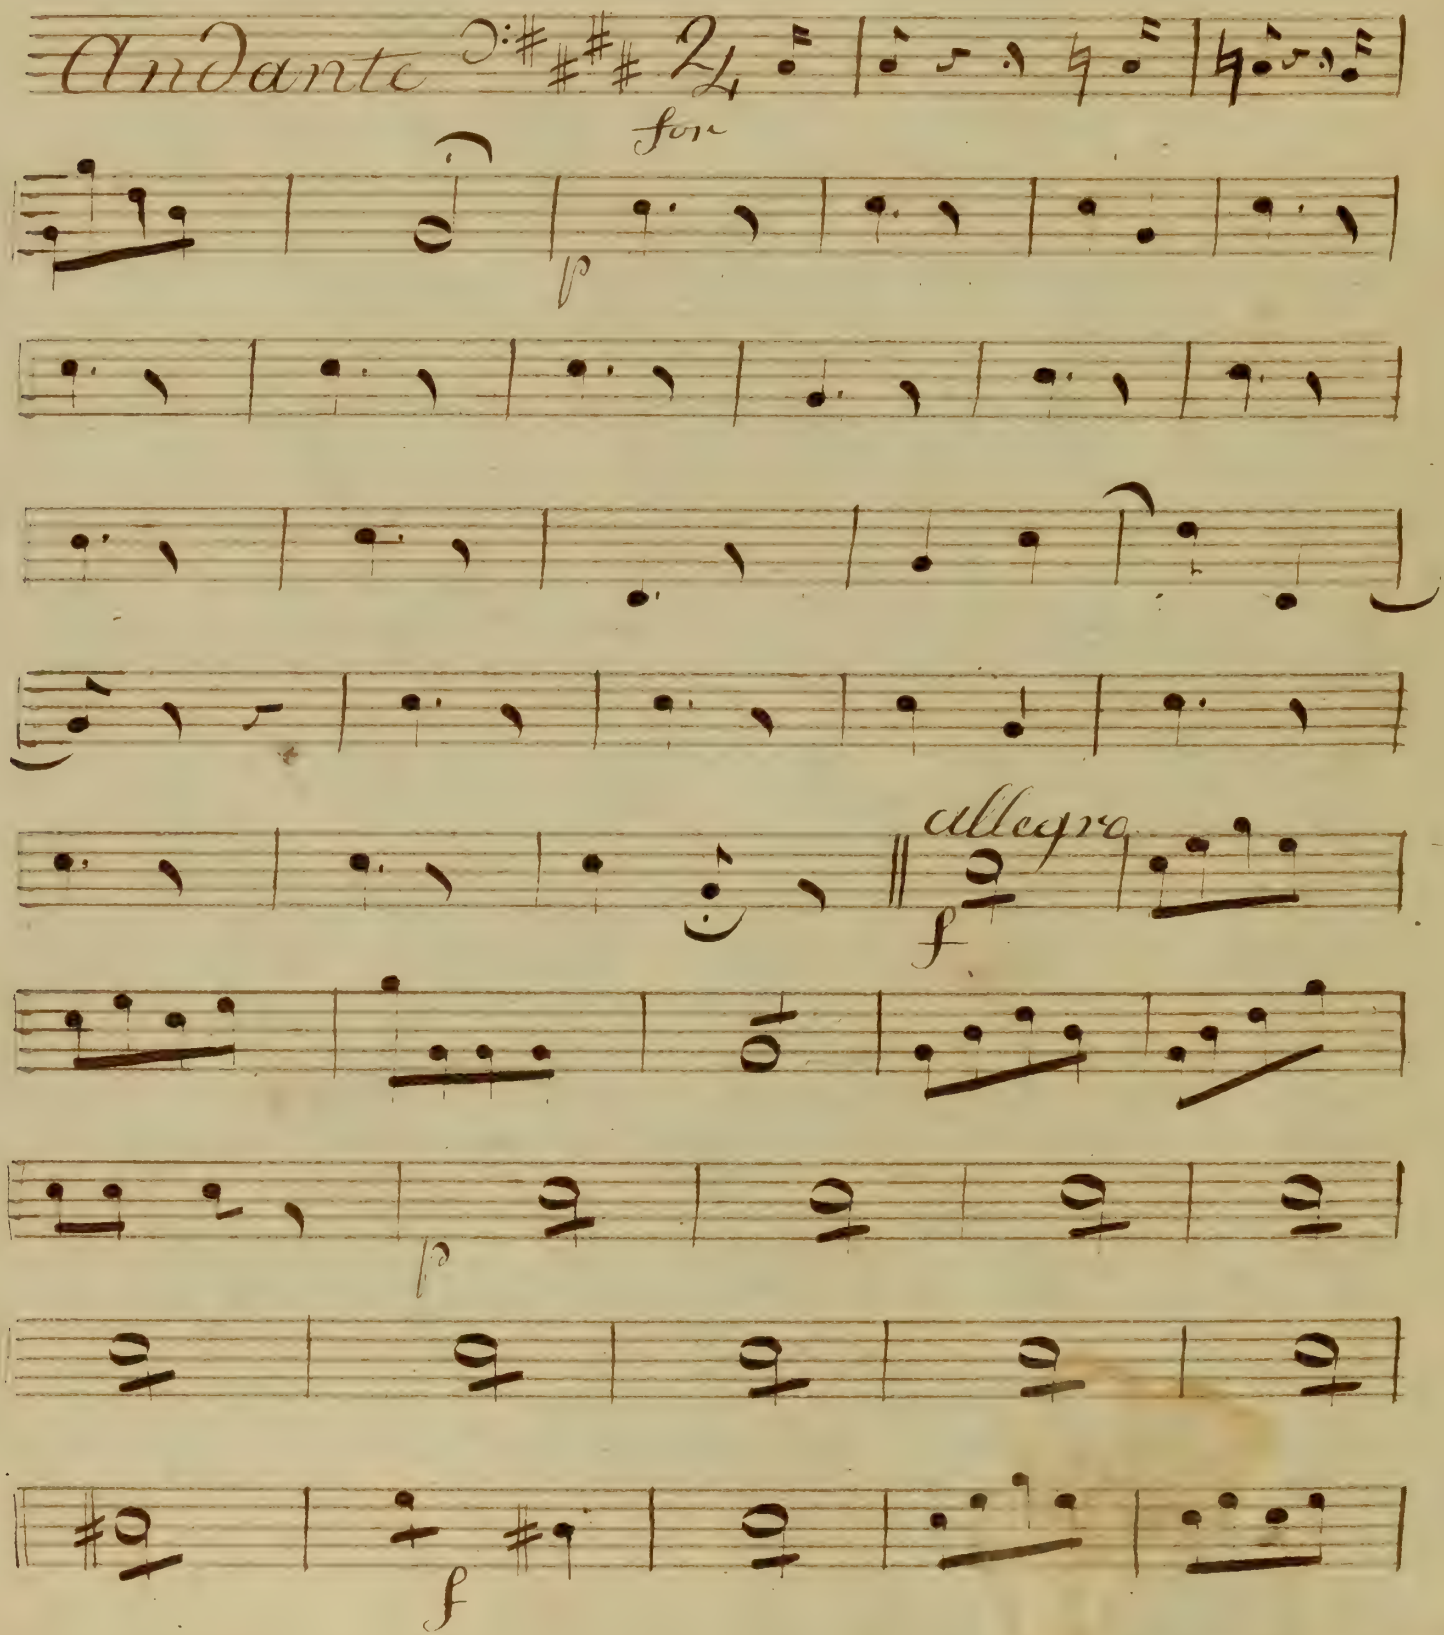 Andante 2/4
for
p
allegro
f
p
f